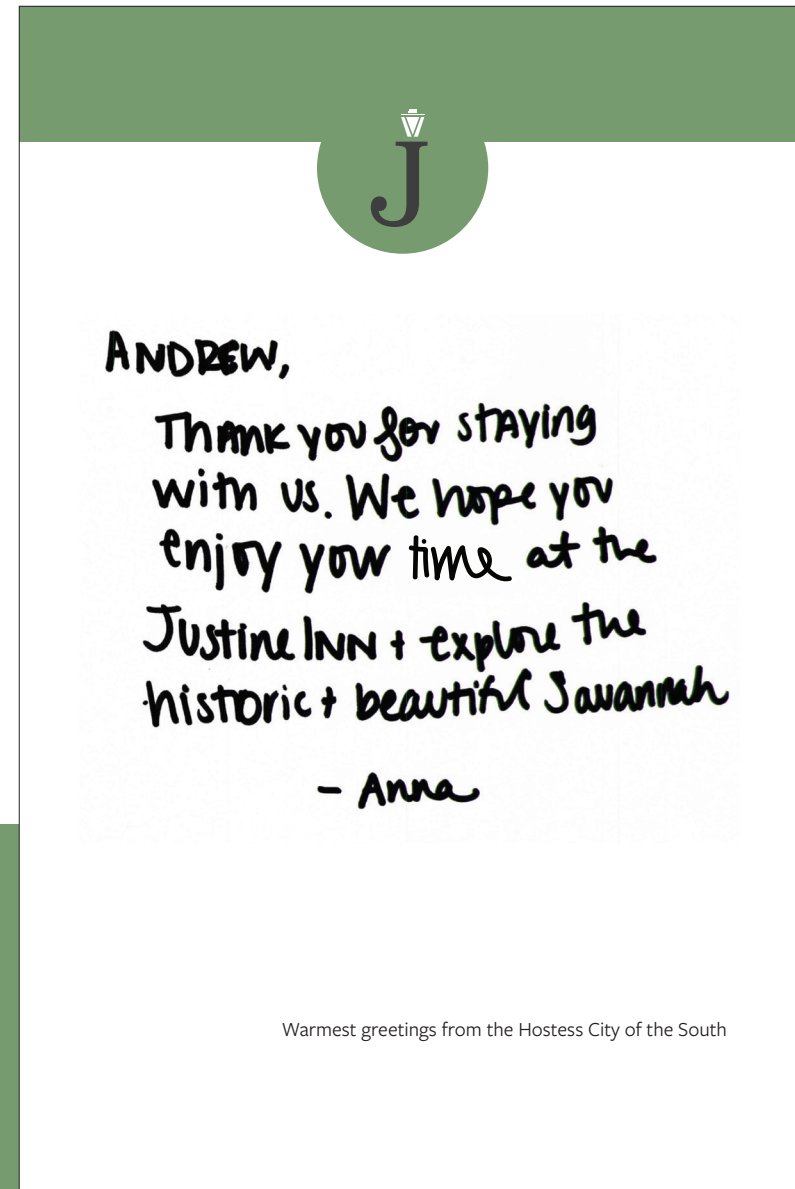 J
ANDREW,
Thank you for staying
with us. We hope you
enjoy your time at the
Justine INN + explore the
historic + beautiful Savannah
- Anna
Warmest greetings from the Hostess City of the South